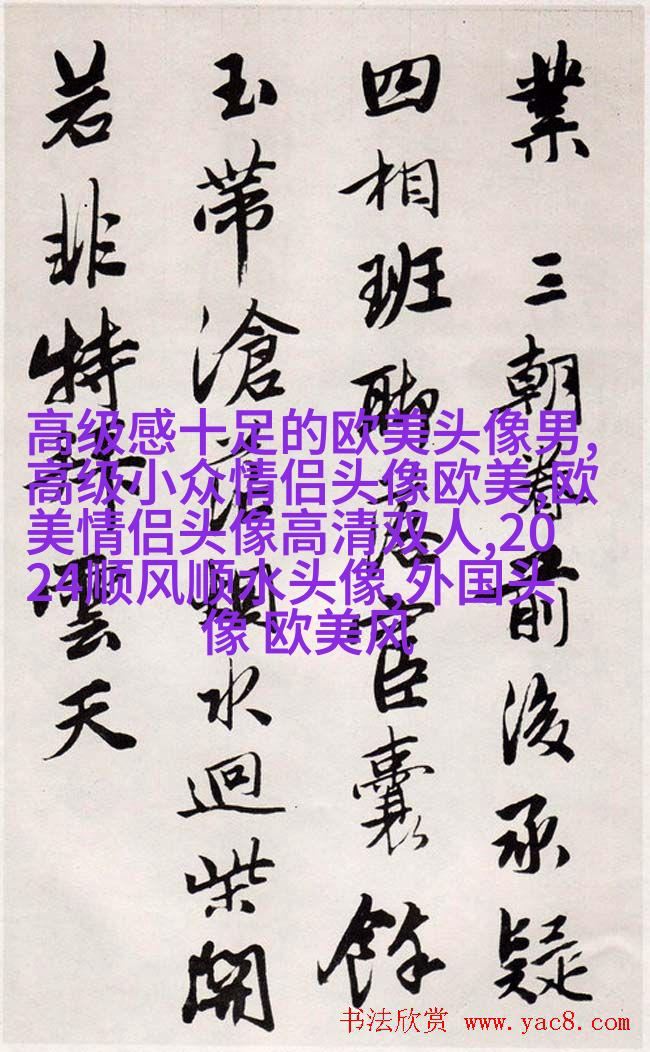 業 三朝前後承疑
四相班聯宦囊餘
玉帶滄水迴柴開
若非特雲天
高级感十足的欧美头像男,
高级小众情侣头像欧美,欧
美情侣头像高清双人,20
24顺风顺水头像,外国头
像 欧美风
书法欣赏 www.yac8.com